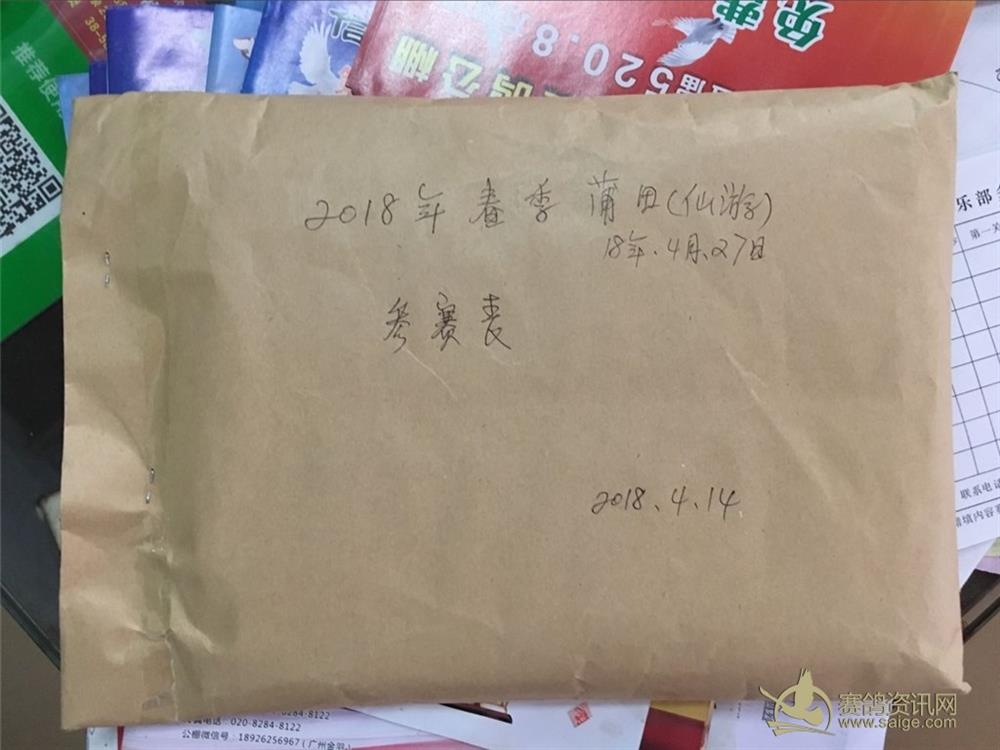 推荐使用
免费
520.8
2018年春季莆田(仙游)
18年.4月.27日
参赛表
2018.4.14
乐部
第一关
联系电话
请填内容
020-8284-8122
公棚微信号：18926256967（广州
赛鸽资讯网
www.saige.com